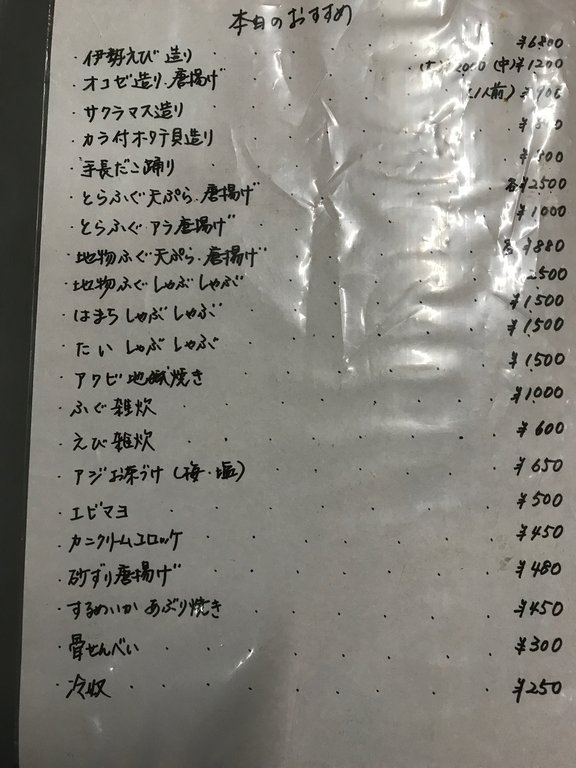 本日のおすすめ
・伊勢えび造り ¥6800
・オコゼ造り.唐揚げ 2000 (中)¥1200
・サクラマス造り (1人前)
・カラ付ホタテ貝造り
・手長だこ踊り ¥800
・とらふぐ天ぷら.唐揚げ 各¥2500
・とらふぐアラ唐揚げ ¥1000
・地物ふぐ天ぷら.唐揚げ 各¥880
・地物ふぐしゃぶしゃぶ 2500
・はまちしゃぶしゃぶ ¥1500
・たいしゃぶしゃぶ ¥1500
・アワビ地獄焼き ¥1500
・ふぐ雑炊 ¥1000
・えび雑炊 ¥600
・アジお茶づけ(梅・塩) ¥650
・エビマヨ ¥500
・カニクリームコロッケ ¥450
・砂ずり唐揚げ ¥480
・するめいかあぶり焼き ¥450
・骨せんべい ¥300
・冷奴 ¥250